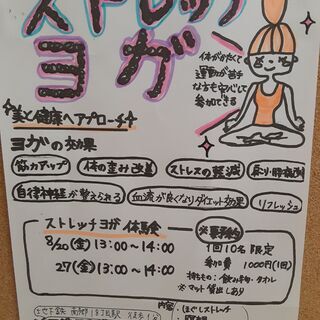 ストレッチ
ヨガ
体がかたくて
運動が苦手
な方も安心して
参加できる
美と健康へアプローチ
ヨガの効果
筋力アップ 体の歪み改善 ストレスの軽減 肩こり・腰痛
自律神経が整えられる 血流が良くなりダイエット効果 リフレッシュ
ストレッチヨガ 体験会
8/20(金) 13:00〜14:00
27(金) 13:00〜14:00
※要予約
1回10名限定
参加費 1000円(1回)
持ちもの:飲み物・タオル
※マット貸出しあり
地下鉄 南郷18丁目駅 徒歩1分
内容:ほぐしストレッチ